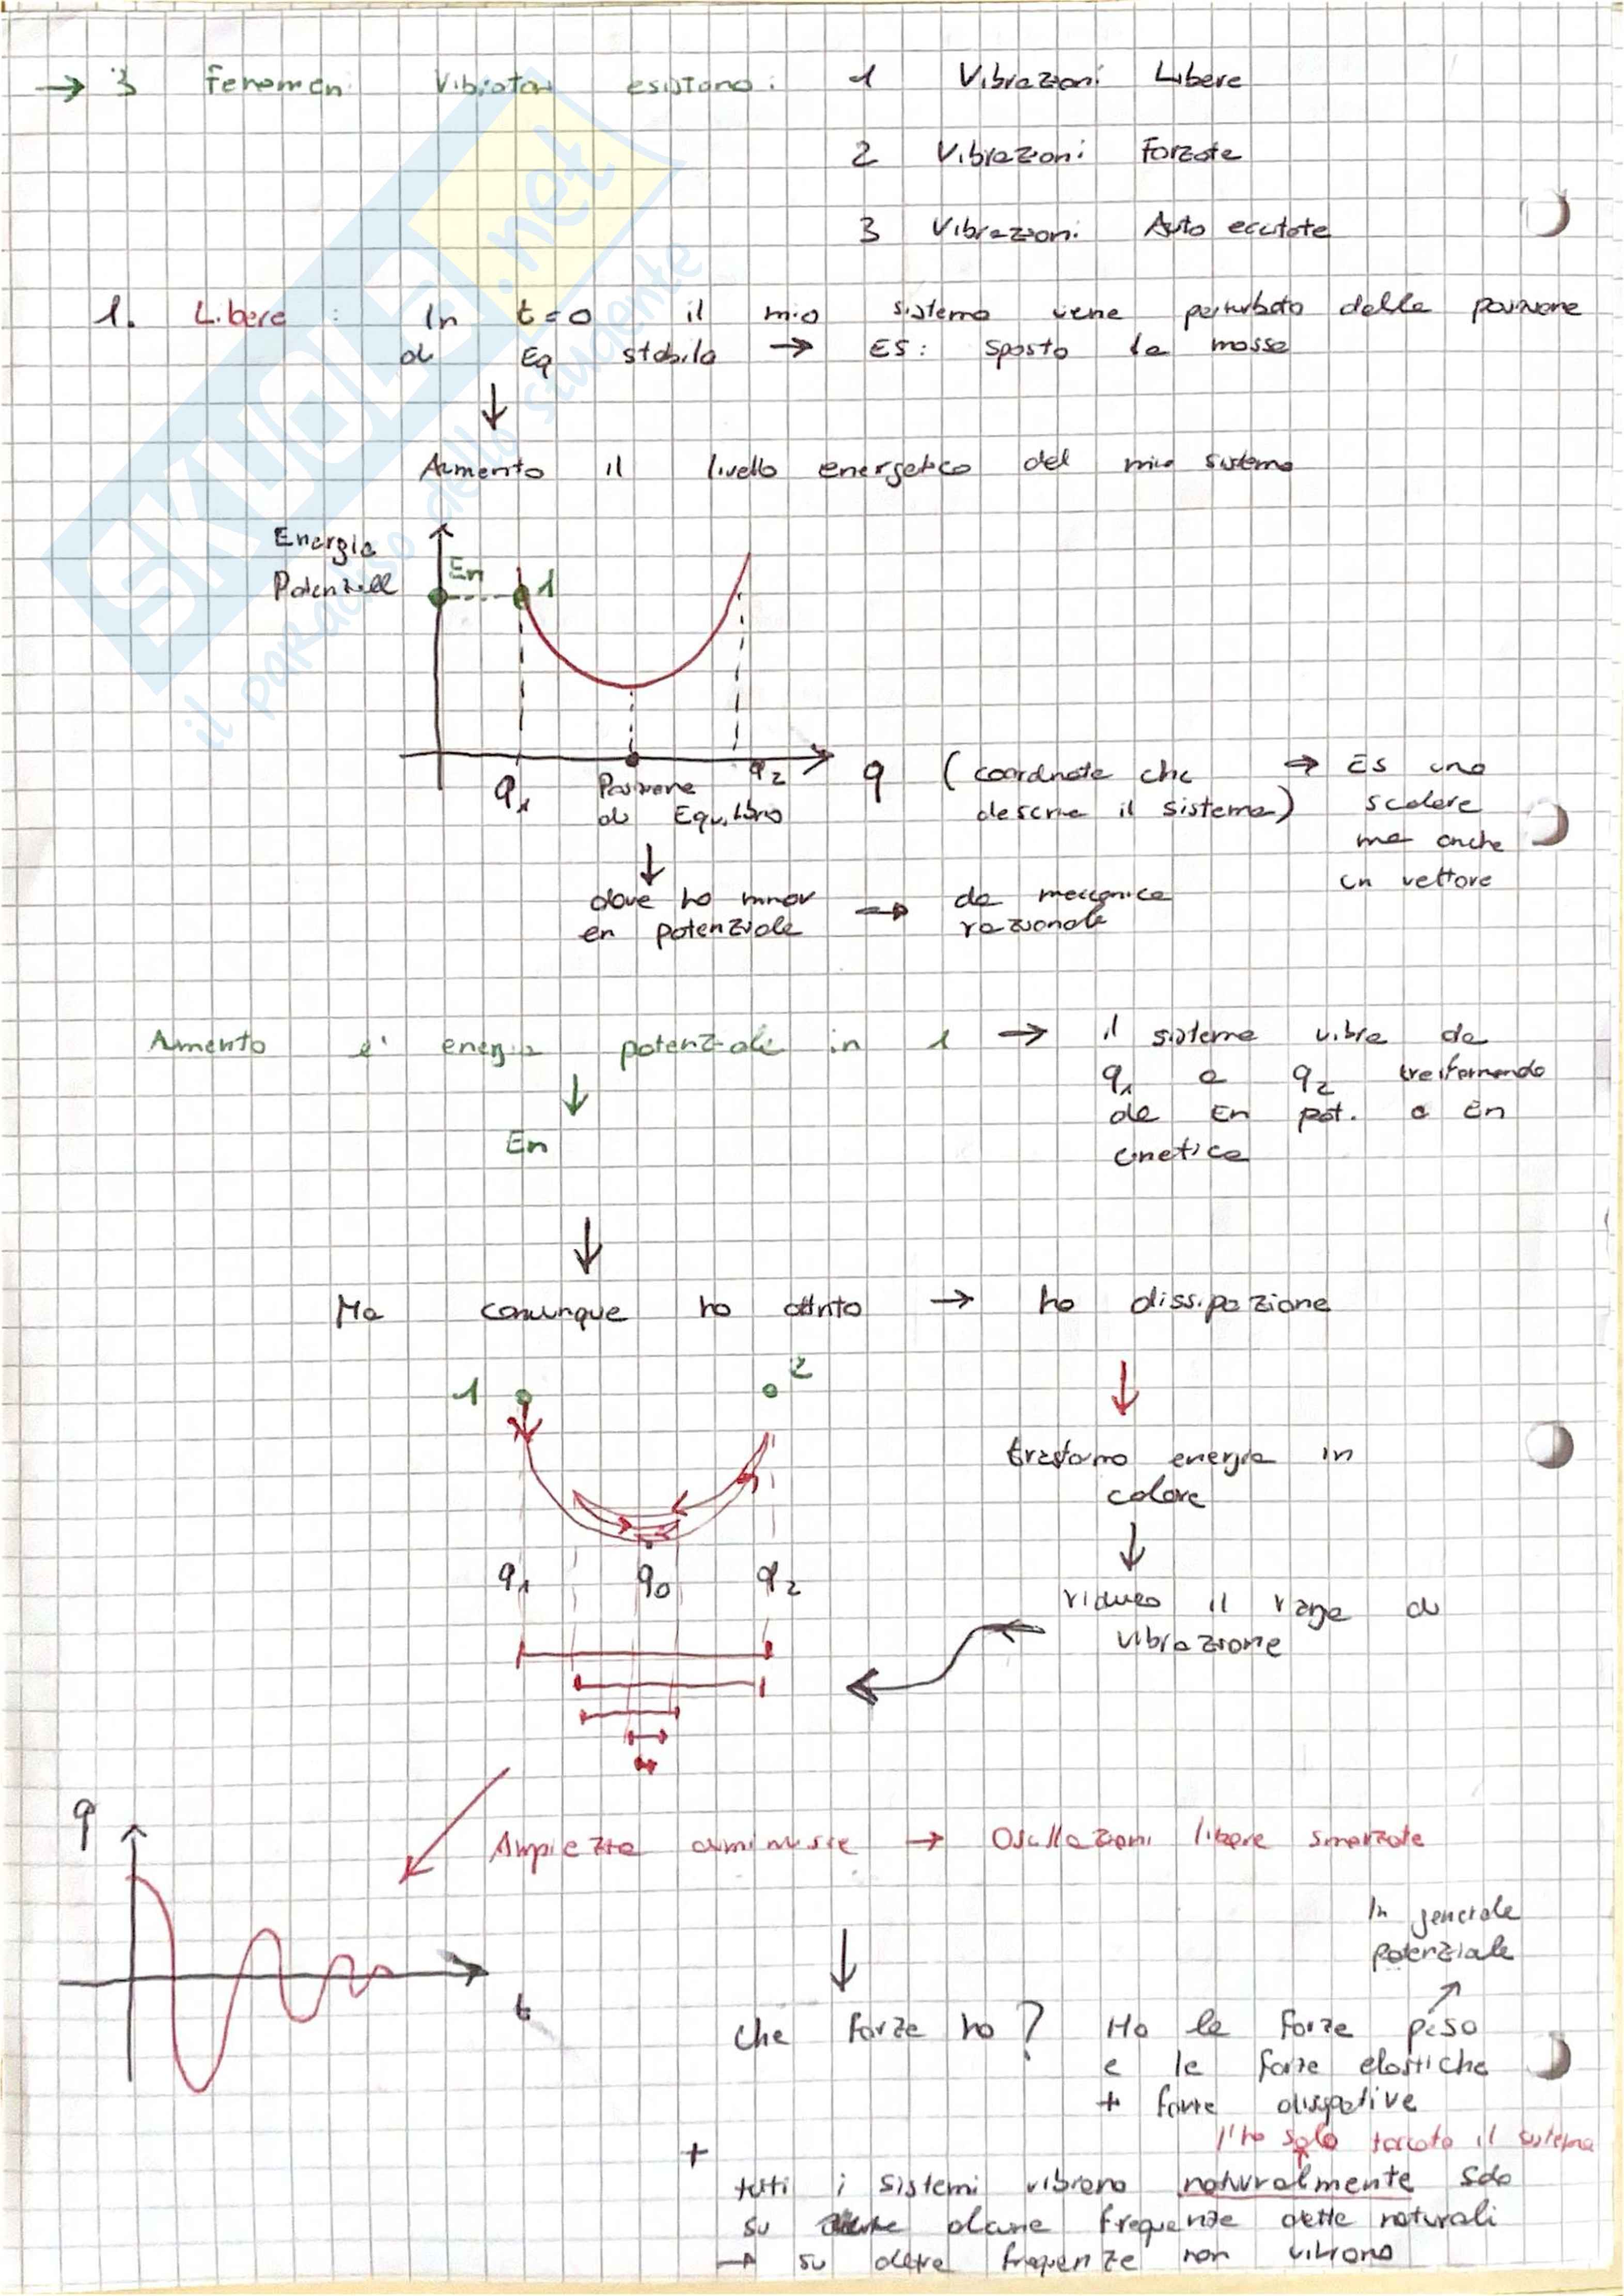 → 3 Fenomeni Vibratori esistono: 1 Vibrazioni Libere
2 Vibrazioni Forzate
3 Vibrazioni Auto eccitate
1. Libere : In t=0 il mio sistema viene perturbato dalla posizione
di Eq stabile → ES: sposto la massa
↓
Aumento il livello energetico del mio sistema
Energia
Potenziale
En
1
q1
Posizione
di Equilibrio
q2
q (coordinate che
descrive il sistema)
→ ES uno
scalare
ma anche
un vettore
↓
dove ho minor
en potenziale
→ da meccanica
razionale
Aumento l' energia potenziale in 1 → il sistema vibra da
q1 a q2 trasformando
da En pot. a En
cinetica
↓
En
↓
Ma comunque ho attrito → ho dissipazione
1
2
↓
trasformo energia in
calore
↓
q1 q0 q2
riduco il range di
vibrazione
q
t
Ampiezza diminuisce → Oscillazioni libere smorzate
In generale
potenziale
↓
che forze ho? Ho le forze peso
e le forze elastiche
+ forze dissipative
l'ho solo toccato il sistema
+
tutti i sistemi vibrano naturalmente solo
su alcune frequenze dette naturali
→ su altre frequenze non vibrano
SKUOLA.net
il paradiso dello studente